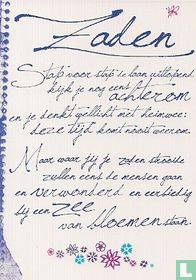 Zaden
Stap voor stap de laan uitlopend
kijk je nog eens
achterom
en je denkt wellicht met heimwee:
deze tijd komt nooit weerom.
Maar waar jij je zaden strooide
zullen eens de mensen gaan
en verwonderd en eerbiedig
bij een zee
van bloemen staan.